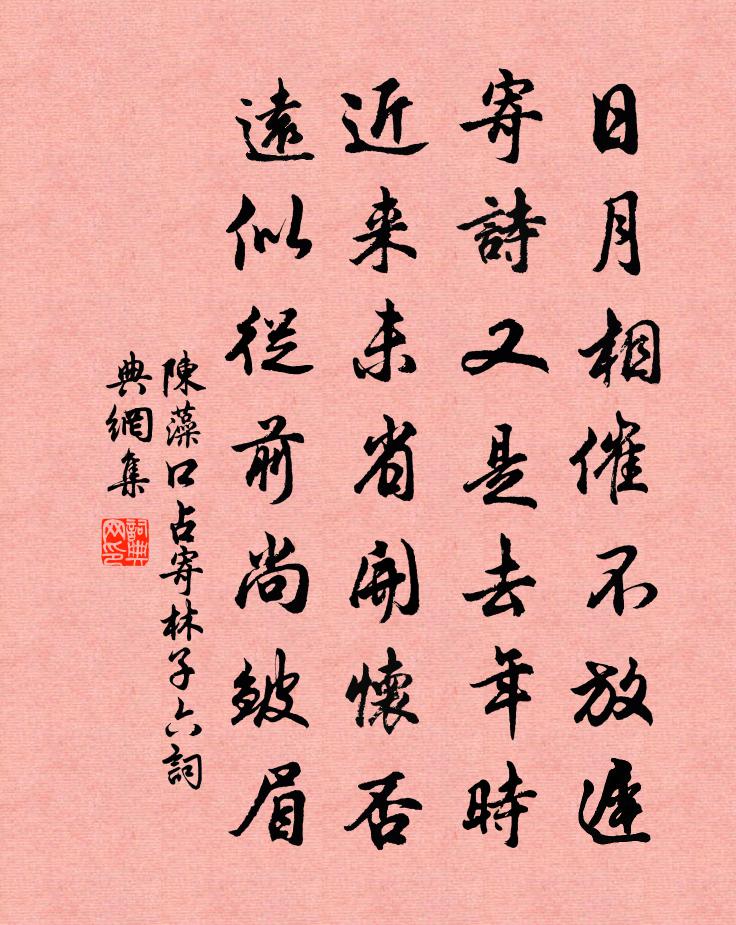 日月相催不放遲
寄詩又是去年時
近来未省開懷否
遠似從前尚皱眉
陳藻口占寄林子六詞
典網集
詞典網印